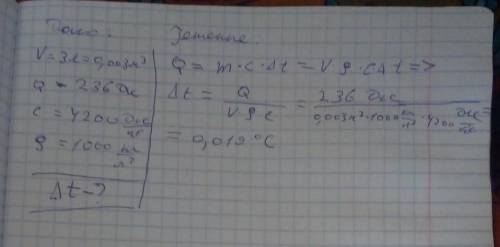 Дано:
V=3л=0,003м³
Q - 236 Дж
c = 4200 Дж/кг
ρ = 1000 кг/м³
Δt - ?
Решение:
Q = m·c·Δt = Vρ·cΔt =>
Δt = Q/Vρc = 236 Дж/0,003м³·1000 кг/м³·4200 Дж/кг =
= 0,019°C